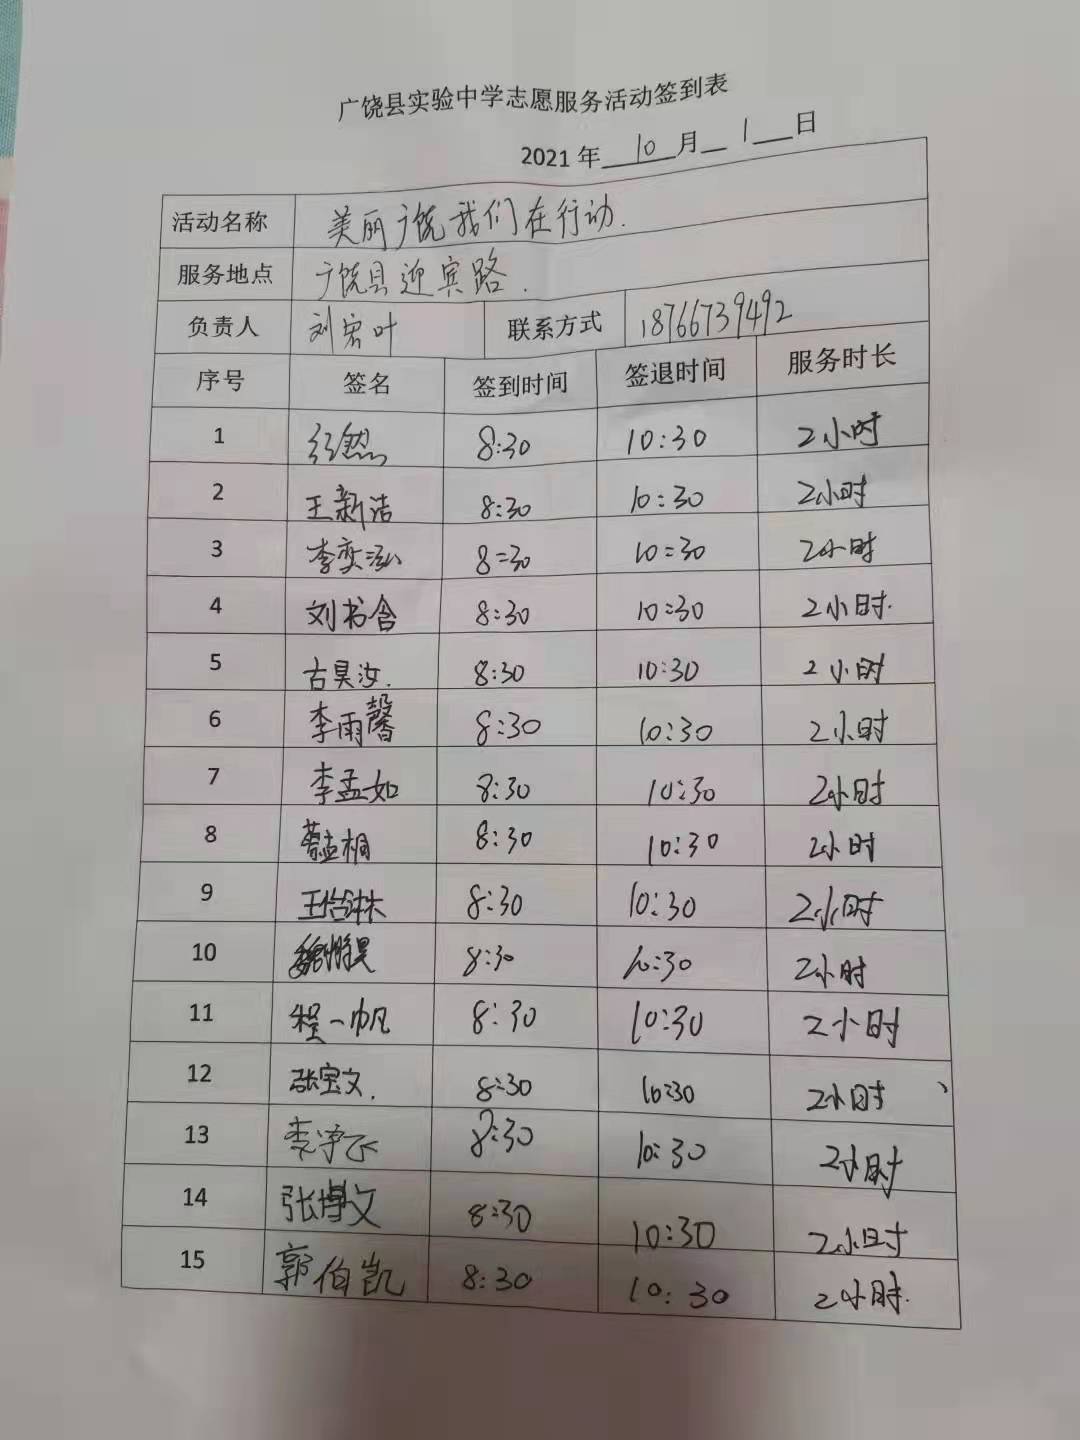 广饶县实验中学志愿服务活动签到表
2021 年 10 月 1 日
活动名称 美丽广饶我们在行动.
服务地点 广饶县迎宾路.
负责人 刘宏叶 联系方式 18766739492
序号 签名 签到时间 签退时间 服务时长
1 8:30 10:30 2小时
2 王新洁 8:30 10:30 2小时
3 李奕泓 8:30 10:30 2小时
4 刘书含 8:30 10:30 2小时.
5 古昊汝. 8:30 10:30 2小时
6 李雨馨 8:30 10:30 2小时
7 李孟如 8:30 10:30 2小时
8 8:30 10:30 2小时
9 8:30 10:30 2小时
10 8:30 10:30 2小时
11 程一帆 8:30 10:30 2小时
12 张宝文. 8:30 10:30 2小时
13 8:30 10:30 2小时
14 张博文 8:30 10:30 2小时
15 郭伯凯 8:30 10:30 2小时.